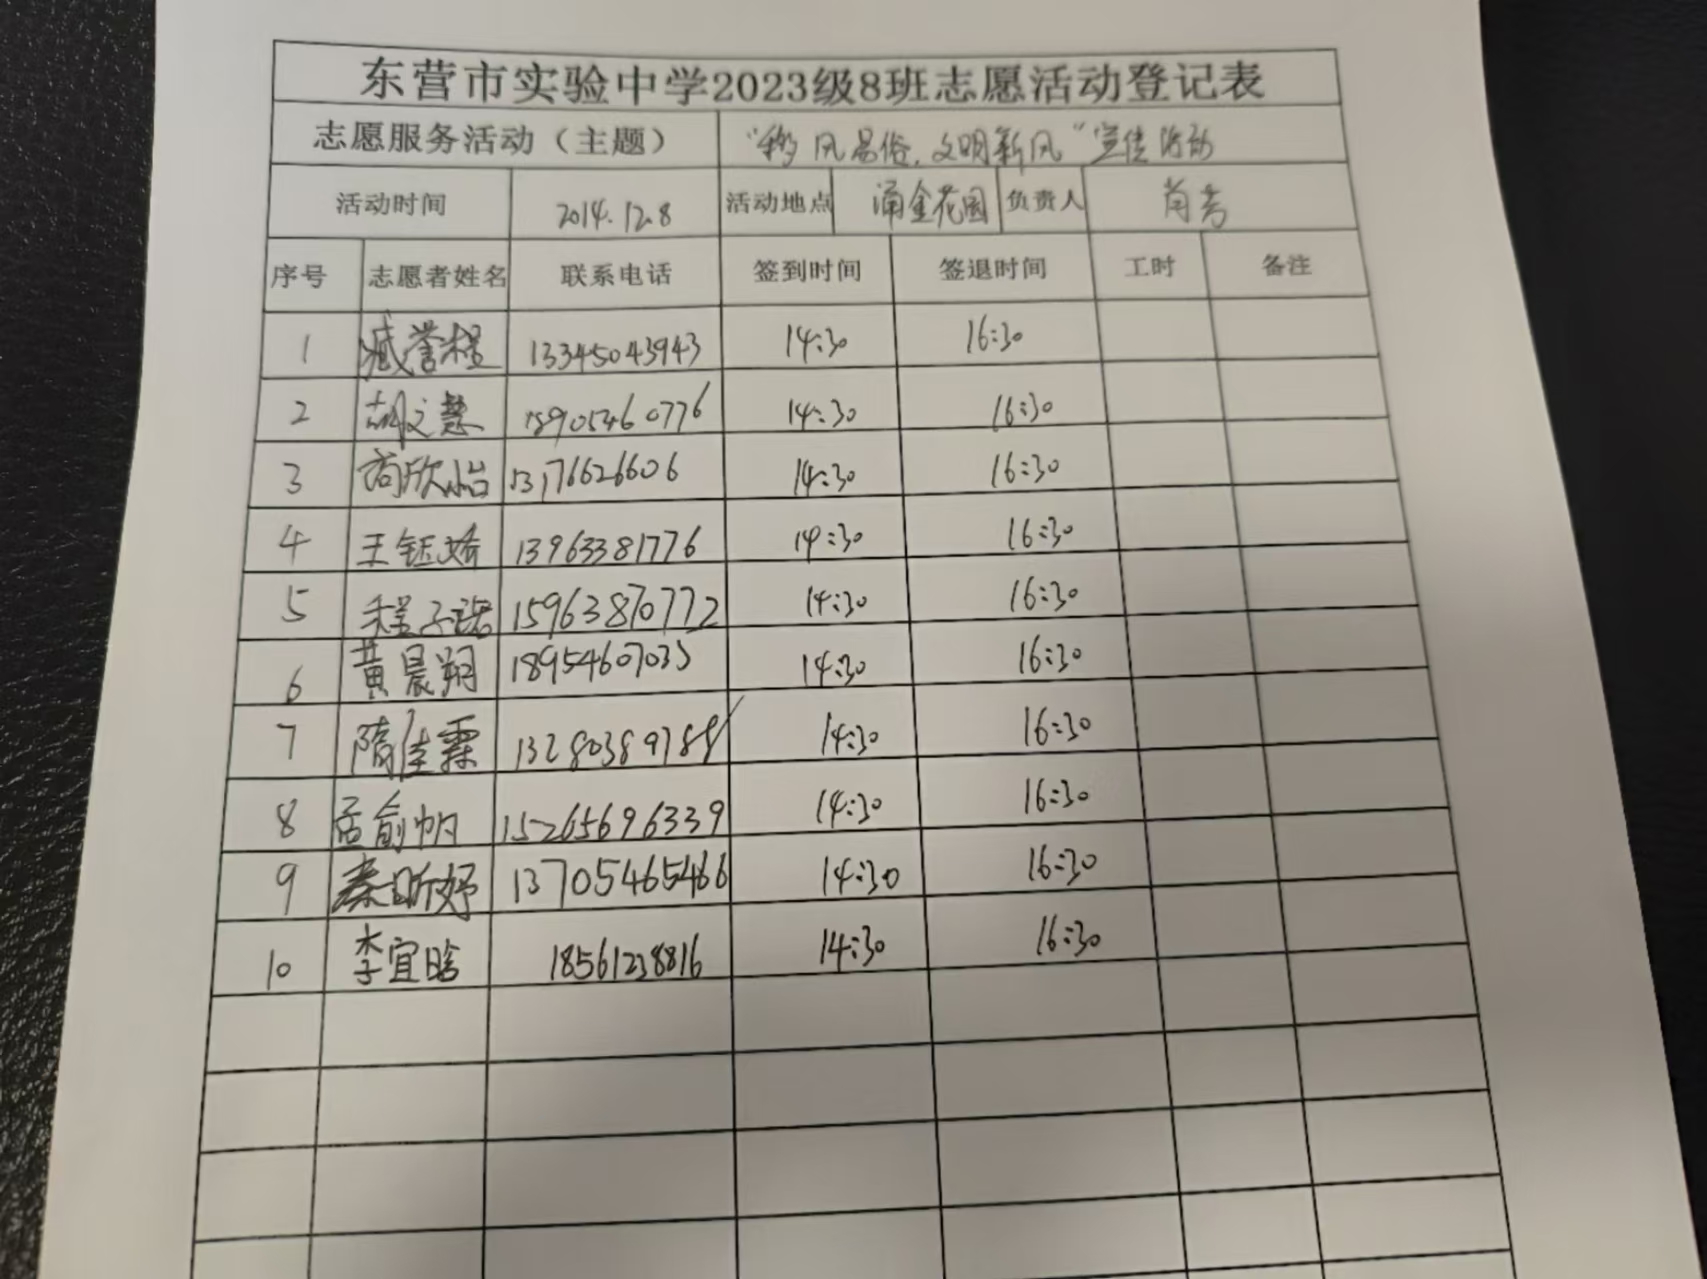 东营市实验中学2023级8班志愿活动登记表
志愿服务活动（主题） “移风易俗,文明新风”宣传活动
活动时间 2014.12.8 活动地点 涌金花园 负责人
序号 志愿者姓名 联系电话 签到时间 签退时间 工时 备注
1 臧誉程 13345043943 14:30 16:30
2 胡文慧 18905460776 14:30 16:30
3 尚欣怡 13176626606 14:30 16:30
4 王钰娇 13963381776 14:30 16:30
5 程子诺 15963870772 14:30 16:30
6 黄晨翔 18954607033 14:30 16:30
7 隋佳霖 13280389788 14:30 16:30
8 孟俞帆 15265696339 14:30 16:30
9 秦昕妤 13705465466 14:30 16:30
10 李宜晗 18561238816 14:30 16:30